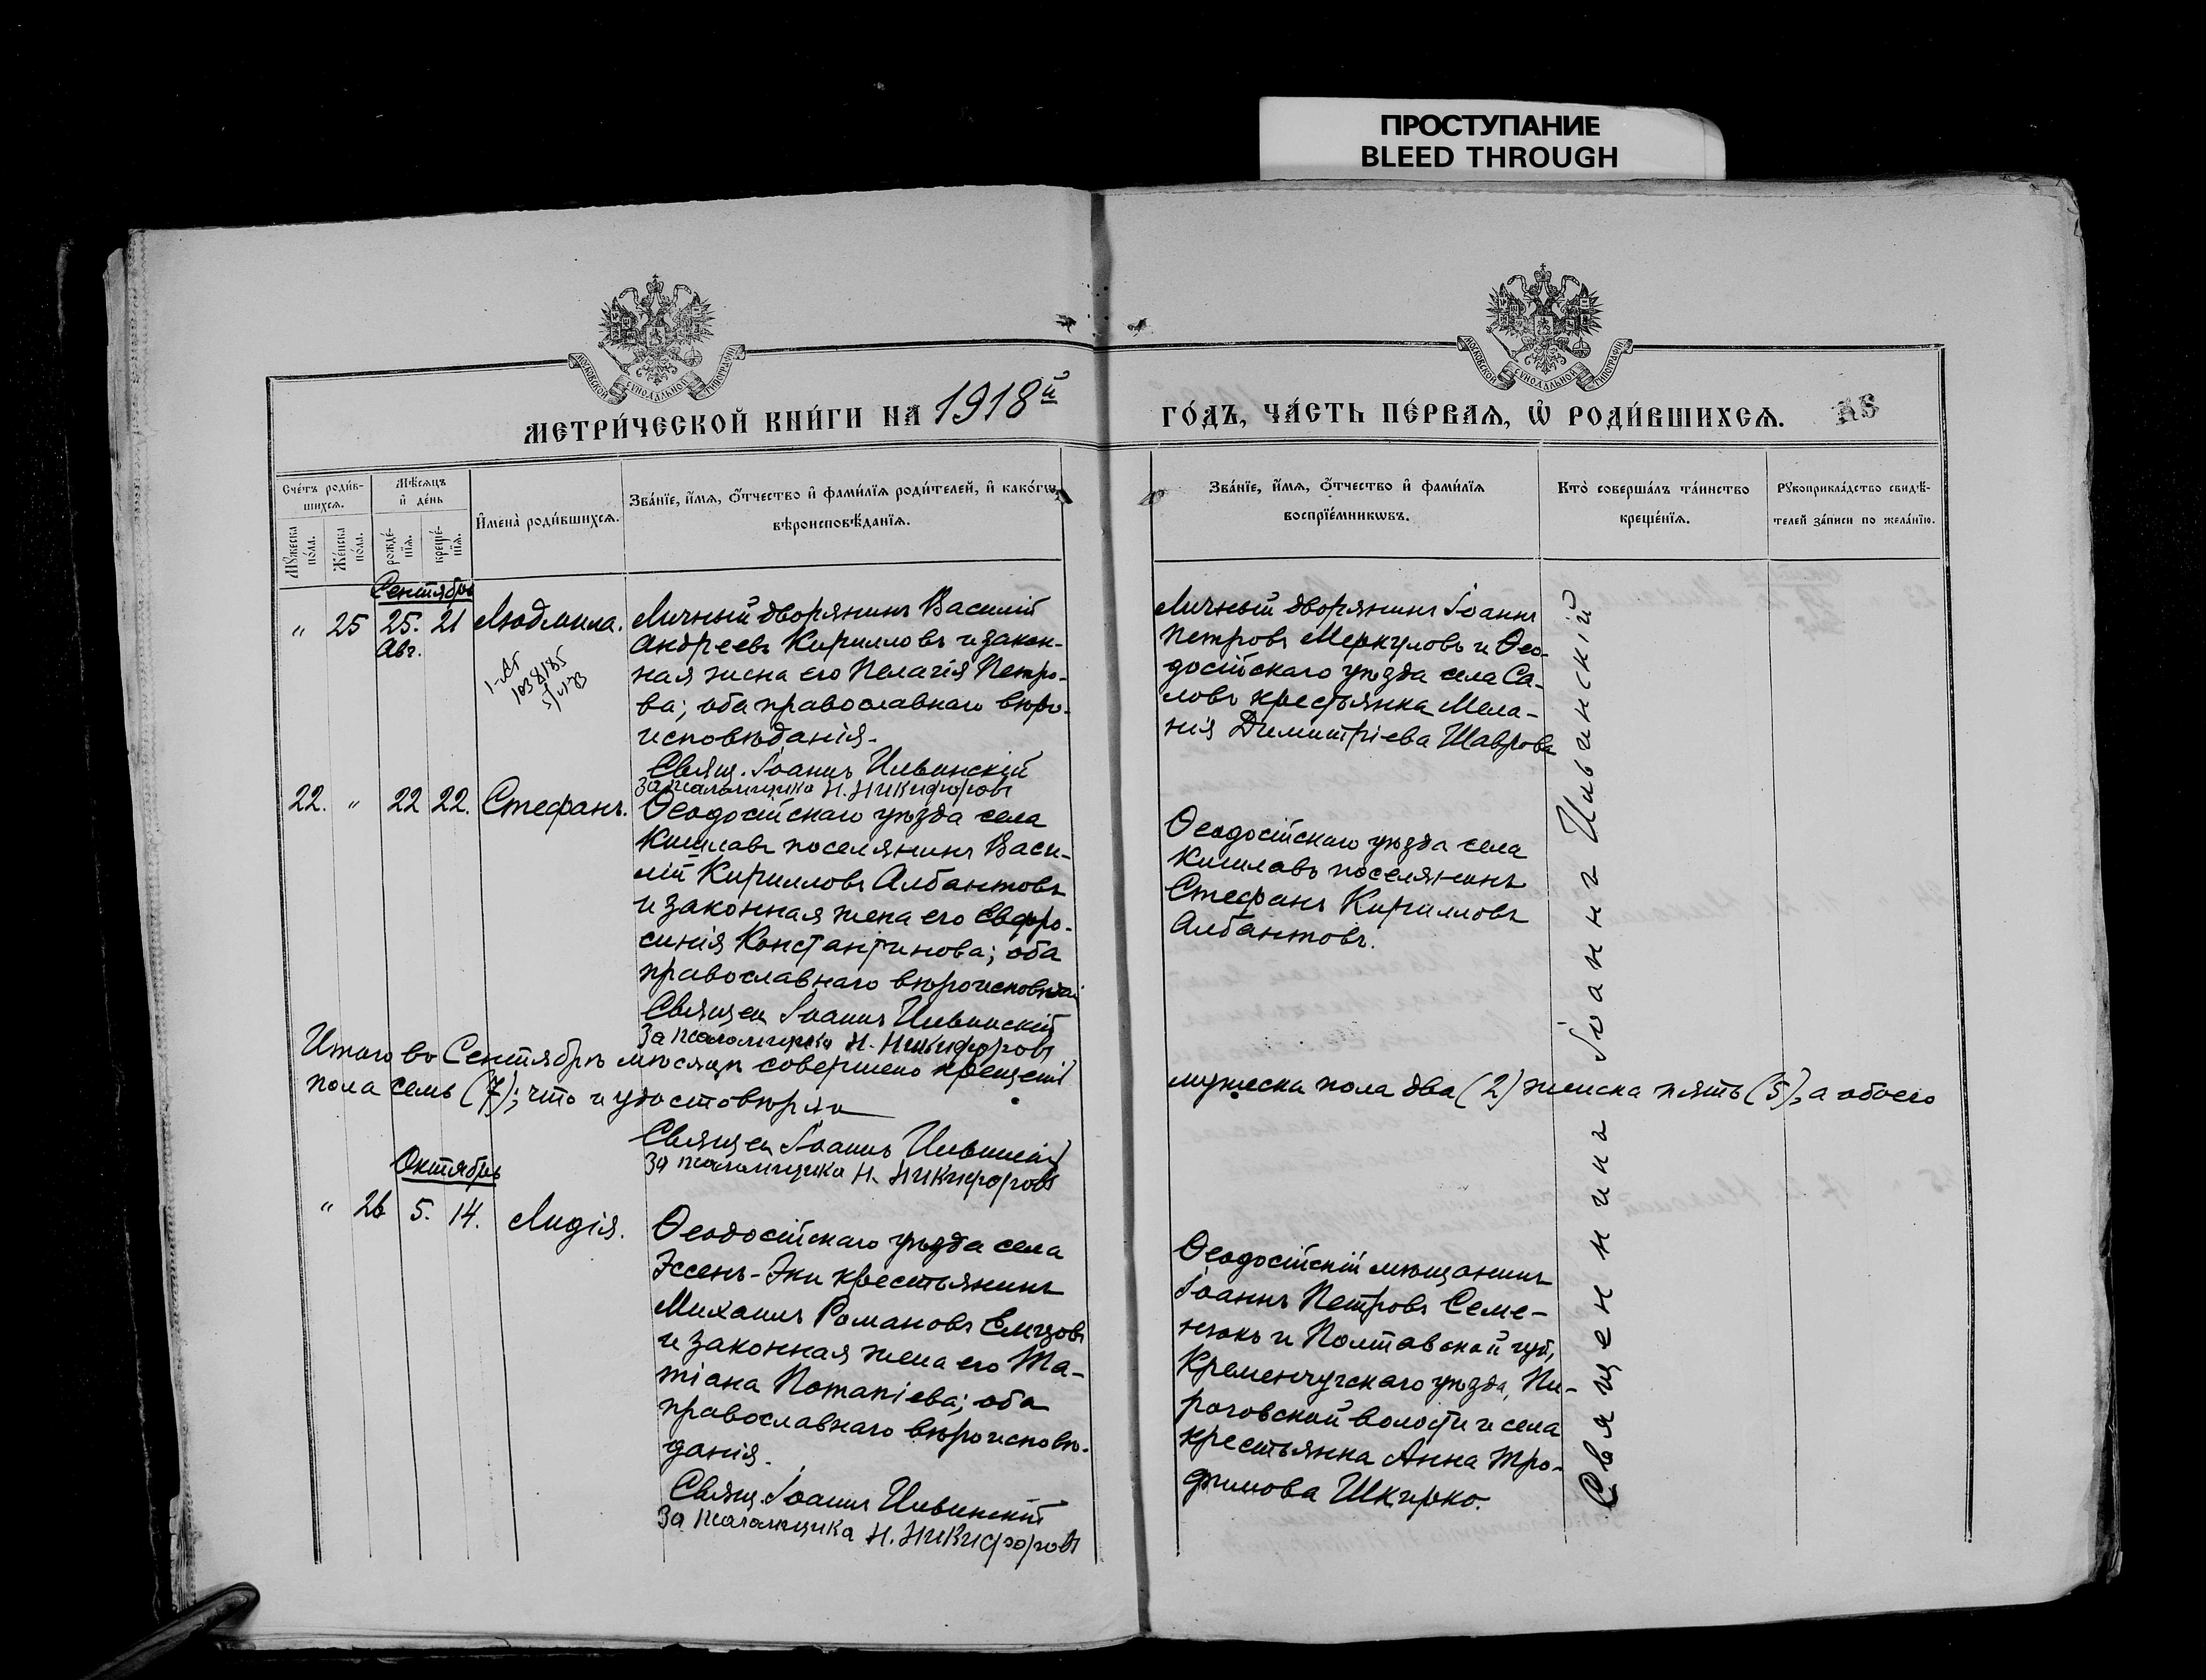 ПРОСТУПАНИЕ
BLEED THROUGH
МОСКОВСКОЙ СѴНОДАЛЬНОЙ ТИПОГРАФІИ
МОСКОВСКОЙ СѴНОДАЛЬНОЙ ТИПОГРАФІИ
МЕТРИ́ЧЕСКОЙ КНИ́ГИ НА 1918й
ГО́ДЪ, ЧА́СТЬ ПЕ́РВАѦ, Ѽ РОДИ́ВШИХСѦ.
Сче́тъ роди́в-
шихсѧ.
Мѣ́сѧцъ
и҆ де́нь
И҆мена̀ роди́вшихсѧ.
Зва́нїе, и҆́мѧ, ѻ҆́тчество и҆ фами́лїѧ роди́телей, и҆ како́гѡ
вѣроисповѣ́данїѧ.
Мꙋ́жеска по́ла.
Же́нска по́ла.
рожде́-
нїѧ.
креще́-
нїѧ.
Зва́нїе, и҆́мѧ, ѻ҆́тчество и҆ фами́лїѧ
воспрїе́мникѡвъ.
Кто̀ соверша́лъ та́инство
креще́нїѧ.
Рꙋкоприкла́дство свидѣ́-
телей за́писи по жела́нїю.
Сентябрь
" 25 25. 21 Людмила.
Авг.
Личный дворянинъ Василій
Андреевъ Кирилловъ и закон-
ная жена его Пелагія Петро-
ва; оба православнаго вѣро-
исповѣданія.
Свящ. Іоаннъ Ильинскій
За псаломщика Н. Никифоровъ
Личный дворянинъ Іоаннъ
Петровъ Меркуловъ и Ѳео-
досійскаго уѣзда села Са-
ловъ крестьянка Мела-
нія Димитріева Шаврова
22. " 22 22. Стефанъ.
Ѳеодосійскаго уѣзда села
Кишлавъ поселянинъ Васи-
лій Кирилловъ Албантовъ
и законная жена его Евфро-
синія Константинова; оба
православнаго вѣроисповѣдай
Священ Іоаннъ Ильинскій
За псаломщика Н. Никифоровъ
Ѳеодосійскаго уѣзда села
Кишлавъ поселянинъ
Стефанъ Кирилловъ
Албантовъ.
Итого въ Сентябрѣ мѣсяцѣ совершено крещеній
мужеска пола два (2) женска пять (5), а обоего
пола семь (7); что и удостовѣряю
Священ Іоаннъ Ильинскій
За псаломщика Н. Никифоровъ
Октябрь
" 26 5. 14. Лидія.
Ѳеодосійскаго уѣзда села
Эссенъ-Эки крестьянинъ
Михаилъ Романовъ Емцовъ
и законная жена его Та-
тіана Потапіева; оба
православнаго вѣроисповѣ-
данія.
Свящ. Іоаннъ Ильинскій
За псаломщика Н. Никифоровъ
Ѳеодосійскій мѣщанинъ
Іоаннъ Петровъ Семе-
нюкъ и Полтавской губ.,
Кременчугскаго уѣзда, Пи-
роговской волости и села
крестьянка Анна Тро-
фимова Шкирко.
Священника Іоаннъ Ильинскій